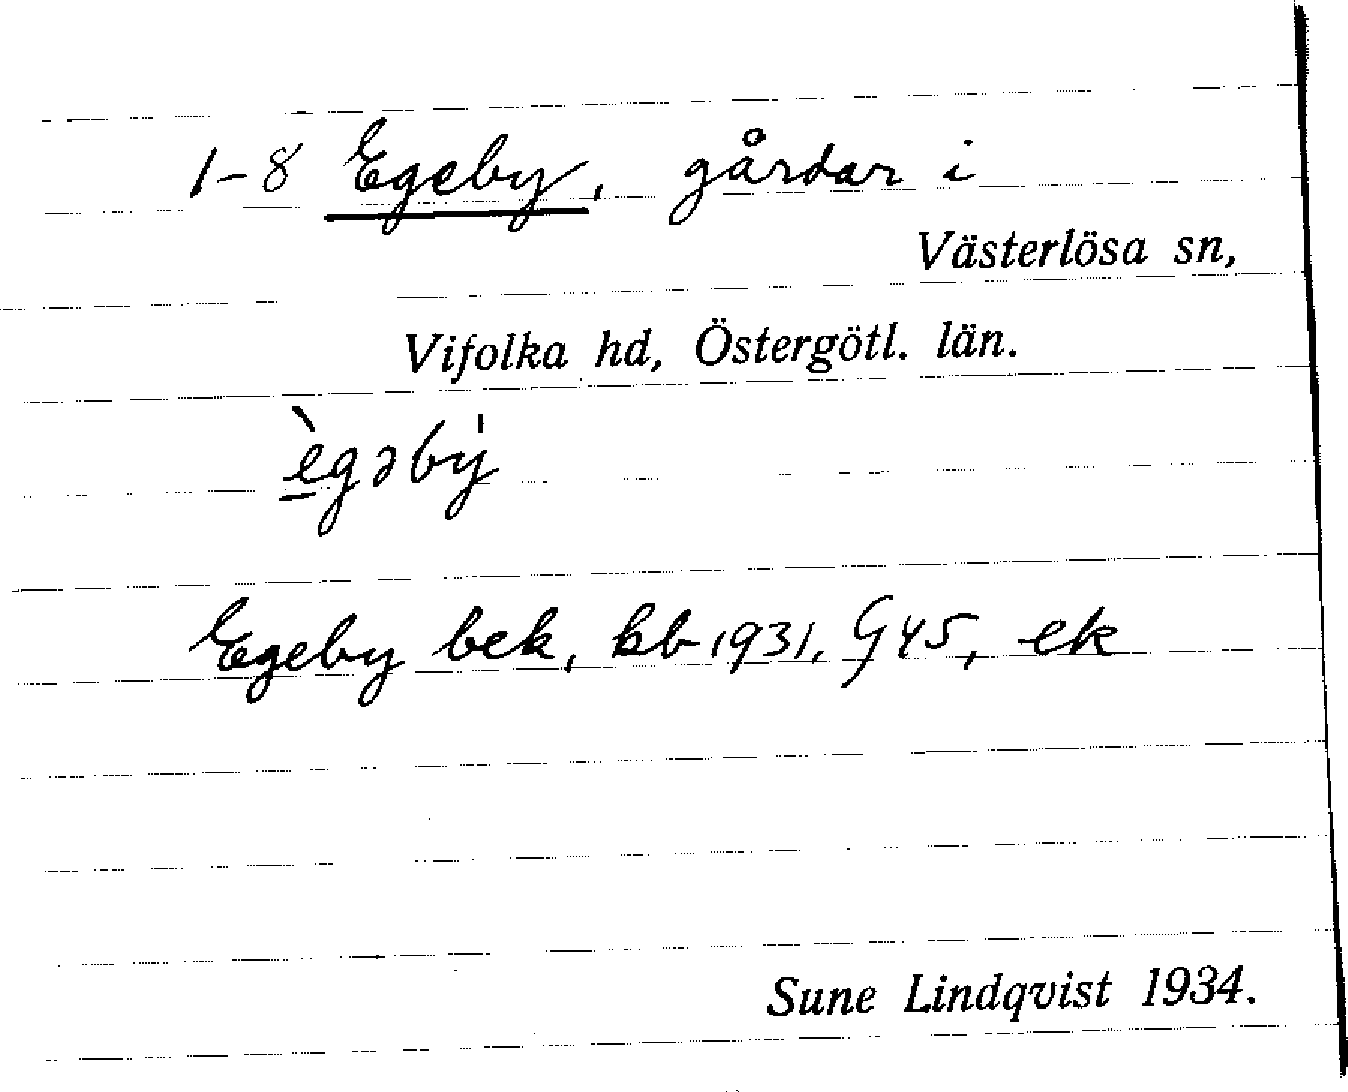 1-8 Egeby, gårdar i
Västerlösa sn,
Vifolka hd, Östergötl. län.
è̱gəbẏ
Egeby bek, kb 1931, G45, ek
Sune Lindqvist 1934.